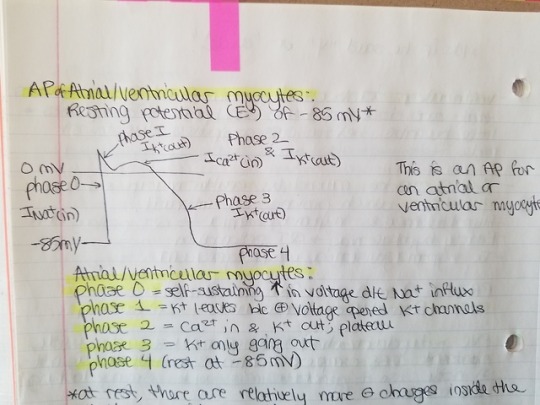 AP of Atrial/ventricular myocytes:
Resting potential (Er) of -85 mV*
phase I
IK+(out)
Phase 2
ICa2+(in) & IK+(out)
0 mV
phase 0
INa+(in)
-85mV
phase 3
IK+(out)
phase 4
This is an AP for
an atrial or
ventricular myocyte
Atrial/ventricular myocytes:
phase 0 = self-sustaining ↑ in voltage d/t Na+ influx
phase 1 = K+ leaves b/c ⊕ voltage opened K+ channels
phase 2 = Ca2+ in & K+ out; plateau
phase 3 = K+ only going out
phase 4 (rest at -85mV)
*at rest, there are relatively more ⊖ charges inside the